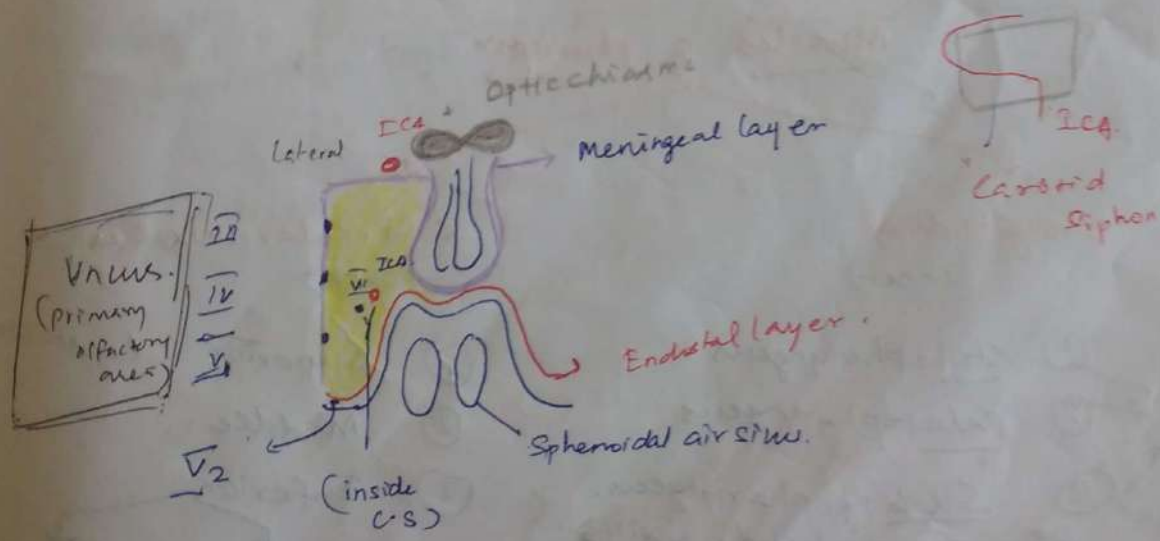 Optic chiasma
ICA
Lateral
Meningeal layer
ICA.
Carotid
Siphon
Uncus.
(primary
olfactory
area)
III
IV
V1
VI
ICA.
Endostal layer.
Sphenoidal air sinus.
V2
(inside
C.S)